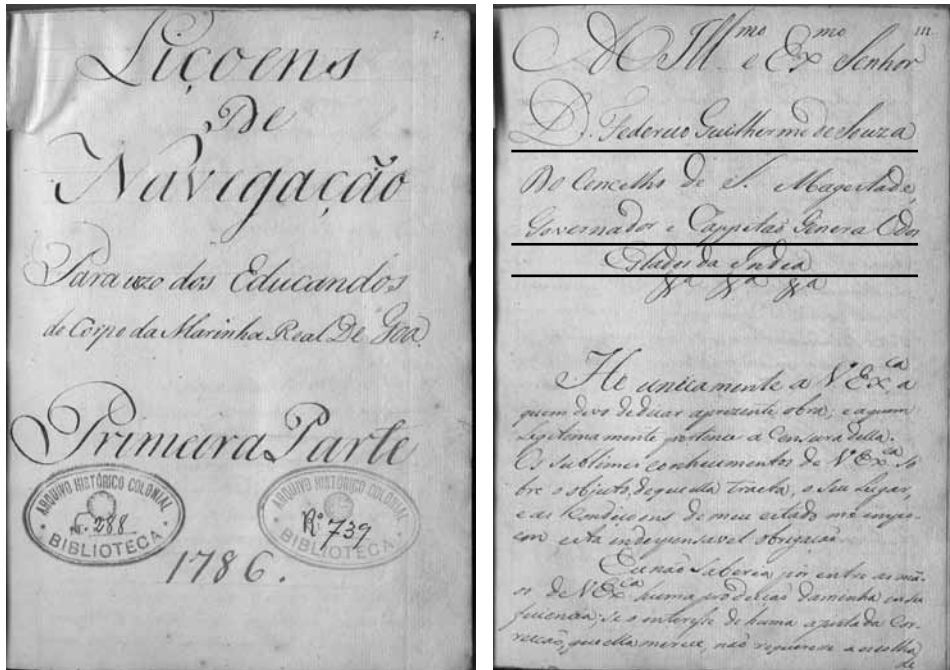 2.
Liçoens
De
Navigação
Para uzo dos Educandos
do Corpo da Marinha Real De Goa.
Primeira Parte
ARQUIVO HISTÓRICO COLONIAL
Nº 288
BIBLIOTECA
ARQUIVO HISTÓRICO COLONIAL
Rº 739
BIBLIOTECA
1786.
III
Ao Illmo e Exmo Senhor
D. Federico Guilherme de Souza
Do Concelho de S. Magestade
Governador e Cappitaõ General dos
Estados da India
&a &a &a
He unicamente a V Exca a
quem devo dedicar aprezente obra, e aquem
Legitimamente pertence a Censura della.
Os sublimes conhecimentos de V Exca so
bre o objecto, dequella tracta, o seu Lugar,
e as Condicoens de meu estado me impo-
em esta indespensavel obrigação.
Eu não Saberia por entre as mã-
os de V Exca huma producão daminha insu
ficiencia, se o interesse de huma apurada Cor-
recão, quella merece, não requeresse a escolha
de